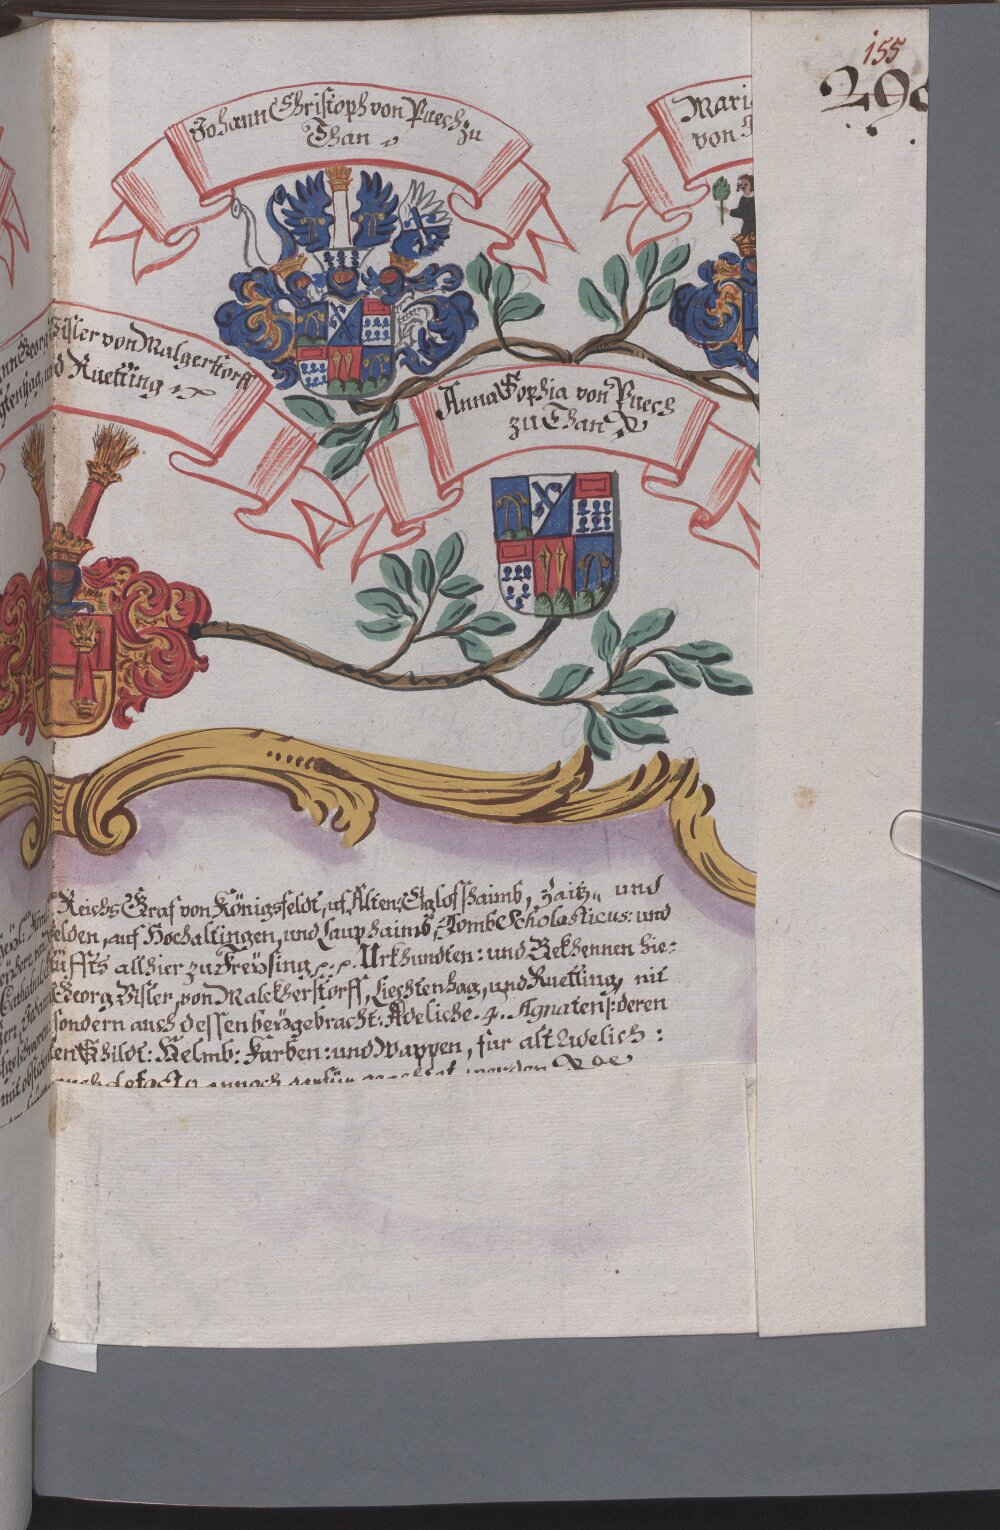 155
298
Johann Christoph von Puech zu
Than
Mari
von
ann Georg Visler von Malgerstorff
htenhag, und Ruetting
Anna Sophia von Puech
zu Than
Reichs Graf von Königsfeldt, uf Alten: Eglofshaimb, Zaitz„ und
elden, auf Hochaltingen, und Lauphaimb, Tomb Scholasticus: und
üffts allhier zu Freysing Urkhundten: und Bekhennen hie:
Georg Visler, von Malckherstorff, Liechtenhag, und Ruetting, nit
sondern auch dessen beygebracht: Adeliche. 4. Agnaten: deren
en Schildt: Helmb: Farben: und Wappen, für alt Adelich:
de facto annoch darfür geachtet werden